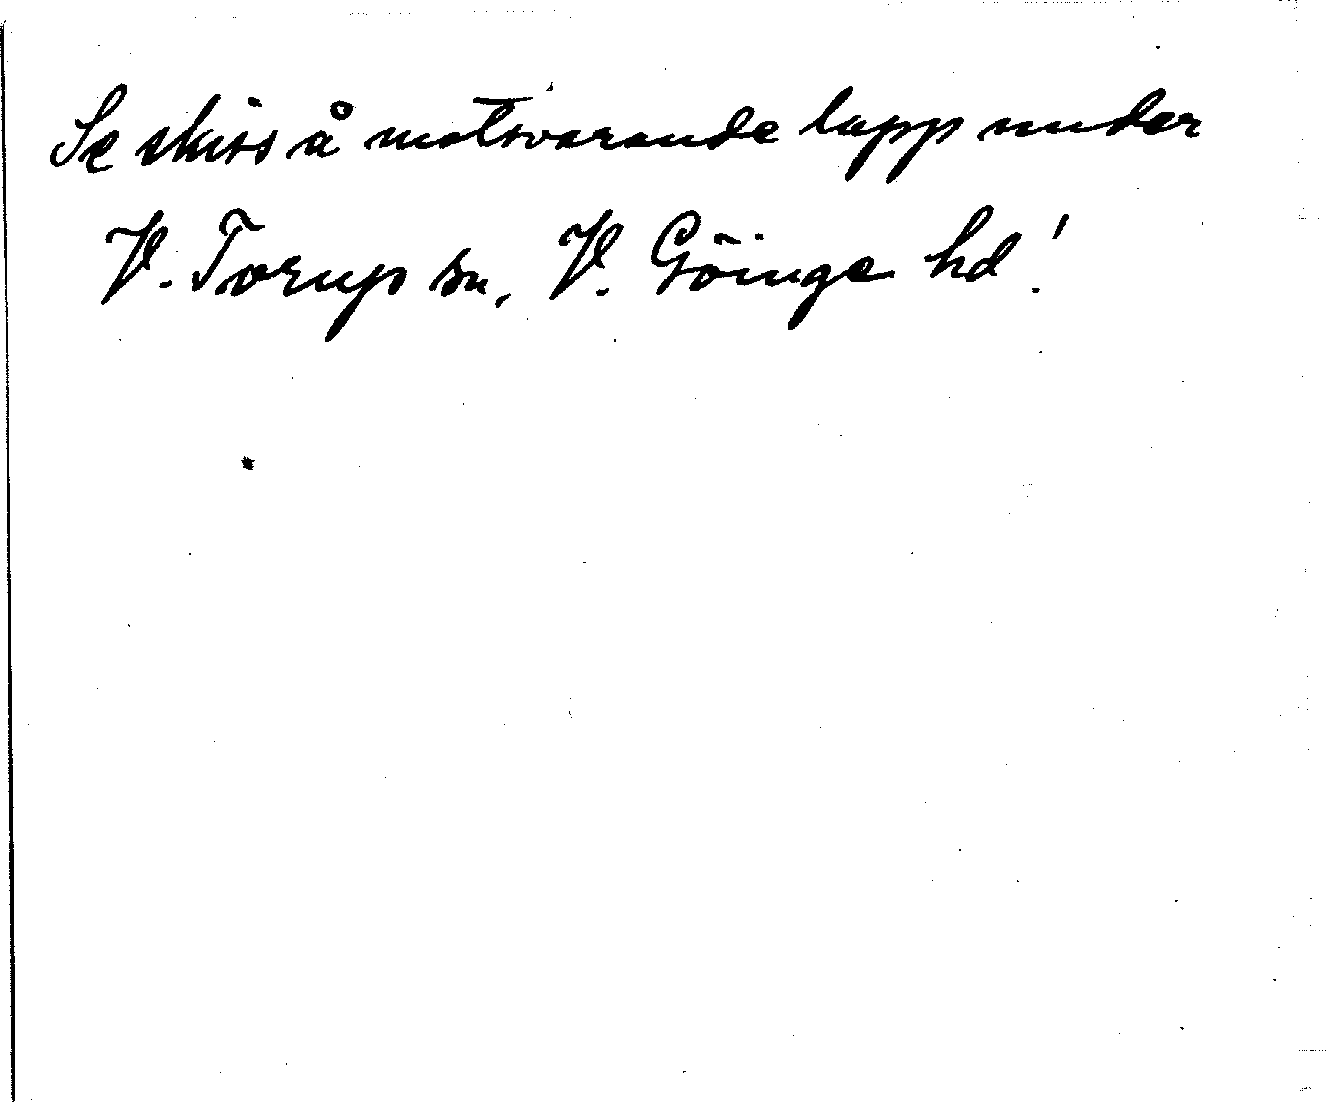 Se skiss å motsvarande lapp under
V. Torup sn, V. Göinge hd!